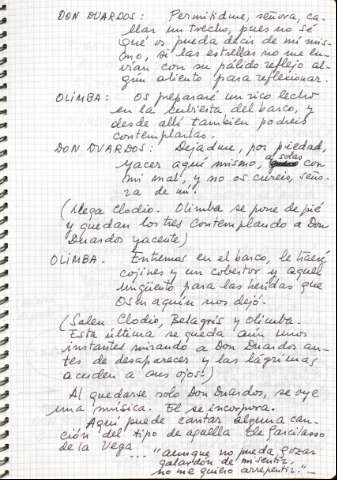 DON DUARDOS: Permitidme, señora, ca-
llar un trecho, pues no sé
qué os pueda decir de mi mis-
mo, si las estrellas no me en-
vían con su pálido reflejo al-
gún aliento para reflexionar.
OLIMBA: Os prepararé un rico lecho
en la cubierta del barco, y
desde allí también podréis
contemplarlas.
DON DUARDOS: Dejadme, por piedad,
yacer aquí mismo, a solas con
mi mal, y no os curéis, seño-
ra de mí!
(Llega Clodio. Olimba se pone de pié
y quedan los tres contemplando a Don
Duardos yacente)
OLIMBA. Entremos en el barco, le traeré
cojines y un cobertor y aquel
ungüento para las heridas que
Osmaquín nos dejó.
(Salen Clodio, Belagrís y Olimba.
Esta última se queda aún unos
instantes mirando a Don Duardos an-
tes de desaparecer y las lágrimas
acuden a sus ojos!)
Al quedarse solo Don Duardos, se oye
una música. El se incorpora.
Aquí puede cantar alguna can-
ción del tipo de aquella de Garcilasso
de la Vega
... "aunque no pueda gozar
galardón de mi sentir,
no me quiero arrepentir."-